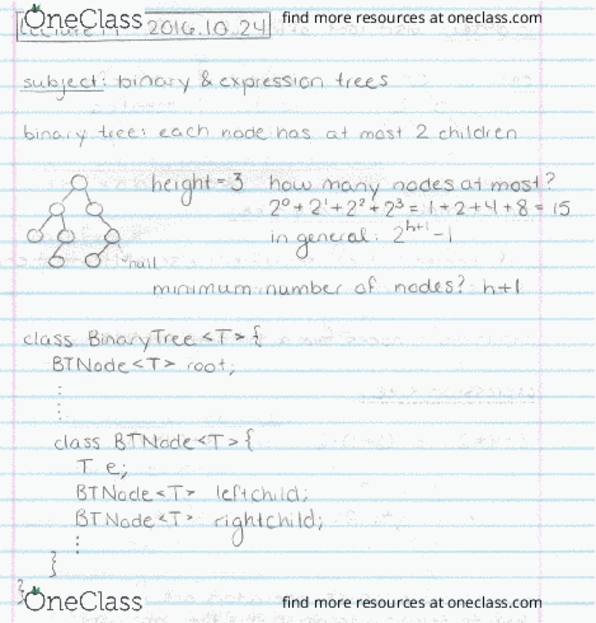 OneClass find more resources at oneclass.com
2016.10.24
subject: binary & expression trees
binary tree: each node has at most 2 children
height = 3 how many nodes at most?
2⁰ + 2¹ + 2² + 2³ = 1 + 2 + 4 + 8 = 15
in general: 2ʰ⁺¹ - 1
null
minimum number of nodes? h+1
class BinaryTree <T> {
BTNode <T> root;
⋮
class BTNode <T> {
T e;
BTNode <T> leftchild;
BTNode <T> rightchild;
⋮
}
}
OneClass find more resources at oneclass.com